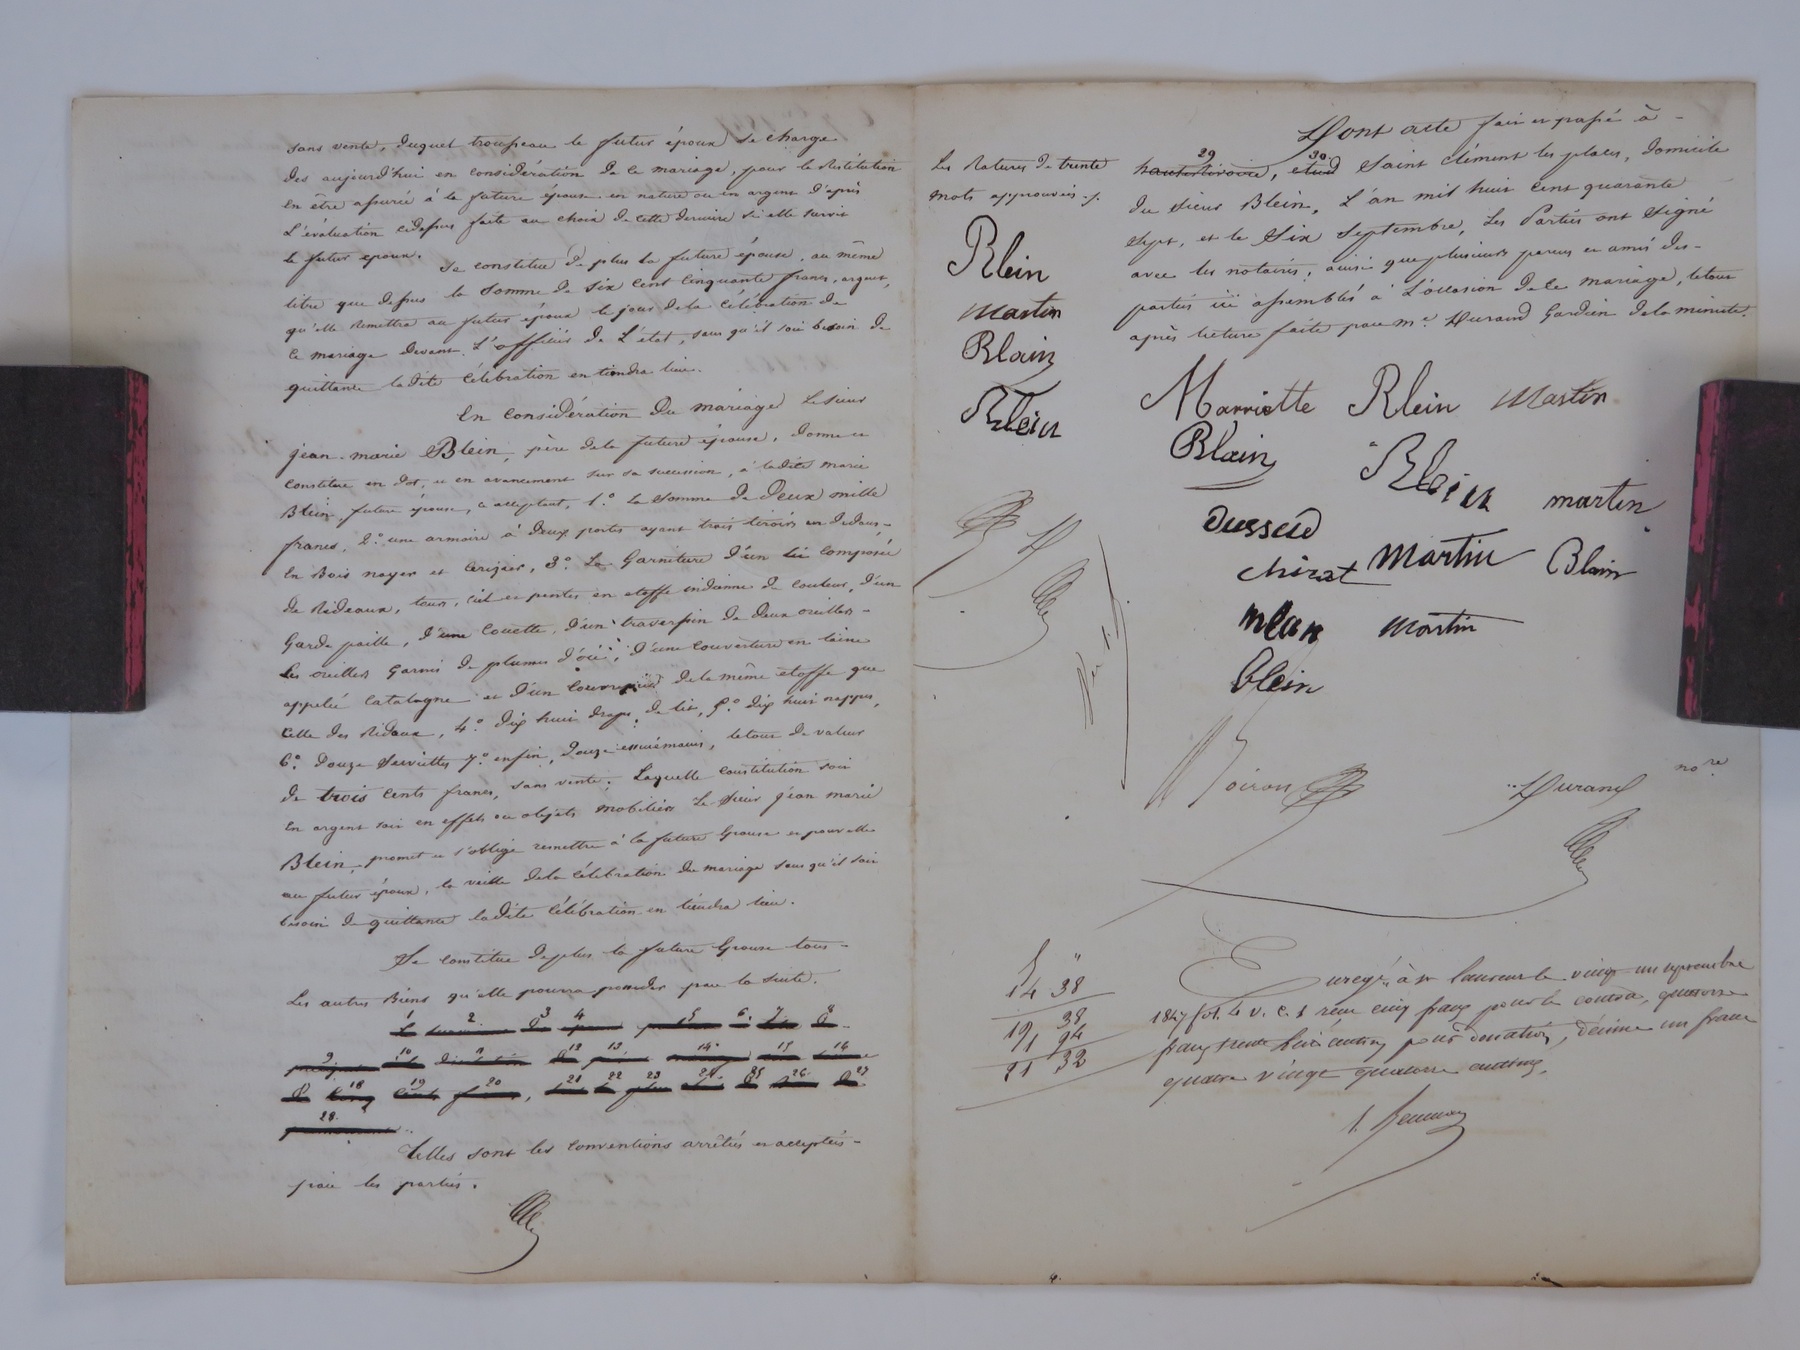 sans vente, duquel trousseau le futur époux se charge
dès aujourd'hui en considération de ce mariage, pour la Restitution
en être assurée à la future épouse en nature ou en argent d'après
L'évaluation cidessus faite au choix de cette dernière si elle survit
le futur époux.
Se constitue de plus la future épouse, au même
titre que dessus la somme de six cent cinquante francs, argent,
qu'elle Remettra au futur époux le jour de la Célébration de
ce mariage devant L'officier de L'état, sans qu'il soit besoin de
quittance ladite Célébration en tiendra lieu.
En Considération du mariage le sieur
jean-marie Blein, père de la future épouse, donne et
Constitue en dot, et en avancement sur sa succession, à ladite marie
Blein future épouse, ce acceptant, 1.º la somme de Deux mille
francs, 2.º une armoire à deux portes ayant trois tiroirs en dedans,-
en Bois noyer et Cerisier, 3.º La Garniture d'un lit composée
de Rideaux, tour, ciel et pentes en étoffe indienne de couleur, d'un
Garde paille, d'une Couette, d'un traversin de deux oreillers-
Les oreillers garnis de plumes d'oie, d'une couverture en laine
appelée Catalogne et d'un couvrepied de la même étoffe que
celle des Rideaux, 4.º dix huit draps de lit, 5.º dix huit nappes,
6.º Douze Serviettes 7.º enfin, douze essuiemains, le tout de valeur
de trois Cents francs, sans vente; Laquelle Constitution soit
en argent soit en effets ou objets mobiliers le sieur jean marie
Blein, promet et s'oblige remettre à la future épouse et pour elle
au futur époux, la veille de la Célébration du mariage sans qu'il soit
besoin de quittance ladite Célébration en tiendra lieu.
Se constitue de plus la future épouse tous-
Les autres Biens qu'elle pourra posséder par la suite.
1 2 3 4 5 6 7 8
9 10 11 12 13 14 15 16
18 19 20 21 22 23 24 25 26 27
28
Telles sont les conventions arrêtées et acceptées-
par les parties.
Les Ratures de trente
mots approuvées ./.
Blein
Martin
Blain
Blein
Dont acte fait et passé à-
29 30
hauterivoire, étud Saint Clément les places, domicile
du sieur Blein, L'an mil huit Cent quarante
Sept, et le Six Septembre, Les Parties ont Signé
avec les notaires, ainsi que plusieurs parens et amis des-
parties ici assemblés à L'occasion de ce mariage, le tout
après lecture faite par m.e Durand Gardien de la minute.
Marriette Blein Martin
Blain Blein martin
Dussud
chirat Martin Blain
Martin
blein
Boiron Durand nore
5 "
14 38
19 38
1 94
21 32
Enregé à St Laurent le vingt un septembre
1847 fol. 4 v. c. 1 reçu cinq francs pour le contrat, quatorze
francs trente huit centimes pour donation, décime un franc
quatre vingt quatorze centimes.